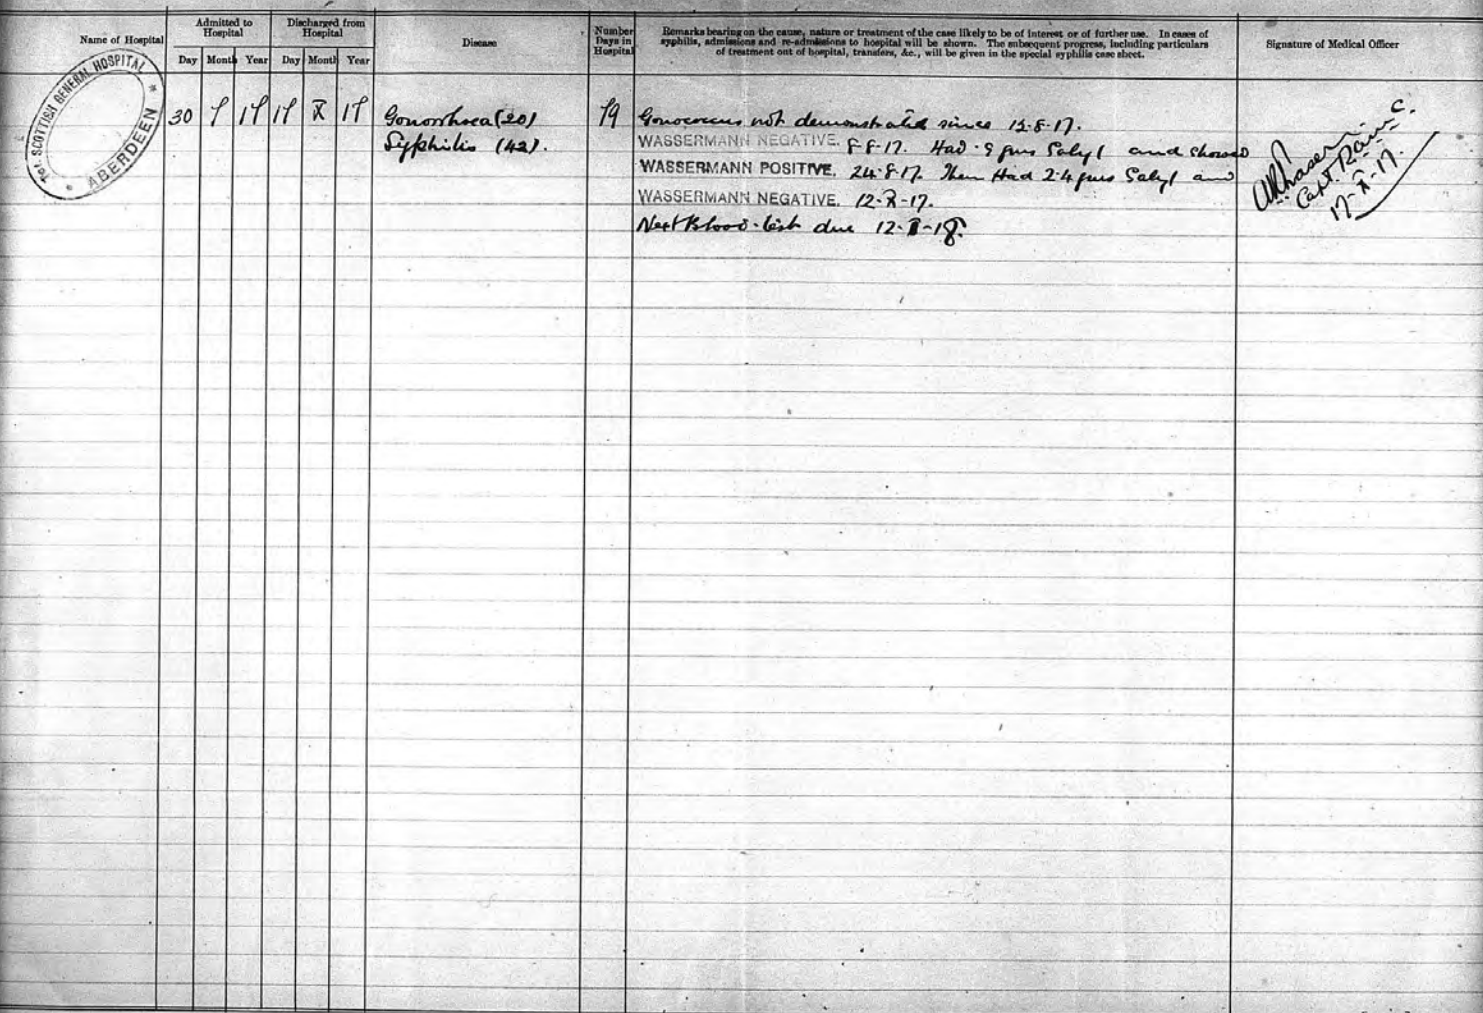 Name of Hospital
Admitted to Hospital
Day Month Year
Discharged from Hospital
Day Month Year
Disease
Number Days in Hospital
Remarks bearing on the cause, nature or treatment of the case likely to be of interest or of further use. In cases of
syphilis, admissions and re-admissions to hospital will be shown. The subsequent progress, including particulars
of treatment out of hospital, transfers, &c., will be given in the special syphilis case sheet.
Signature of Medical Officer
1st SCOTTISH GENERAL HOSPITAL
* ABERDEEN *
30 7 17 17 X 17
Gonorrhoea (20)
Syphilis (42).
79
Gonococcus not demonstrated since 13.8.17.
WASSERMANN NEGATIVE. 8-8-17. Had .9 gms Galyl and showed
WASSERMANN POSITIVE. 24.8.17. Then Had 2.4 gms Galyl and
WASSERMANN NEGATIVE. 12-X-17.
Next Blood-test due 12-I-18.
Capt. R.A.M.C.
17-X-17.